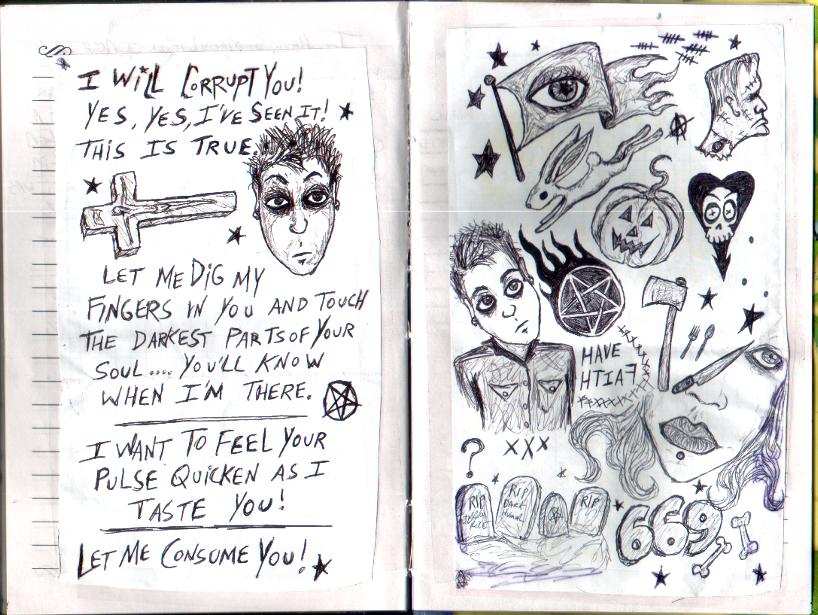 I WILL CORRUPT YOU!
YES, YES, I'VE SEEN IT!
THIS IS TRUE.
LET ME DIG MY
FINGERS IN YOU AND TOUCH
THE DARKEST PARTS OF YOUR
SOUL.... YOU'LL KNOW
WHEN I'M THERE.
I WANT TO FEEL YOUR
PULSE QUICKEN AS I
TASTE YOU!
LET ME CONSUME YOU!
HAVE
HTIAF
?
XXX
RIP
RIP
RIP
669